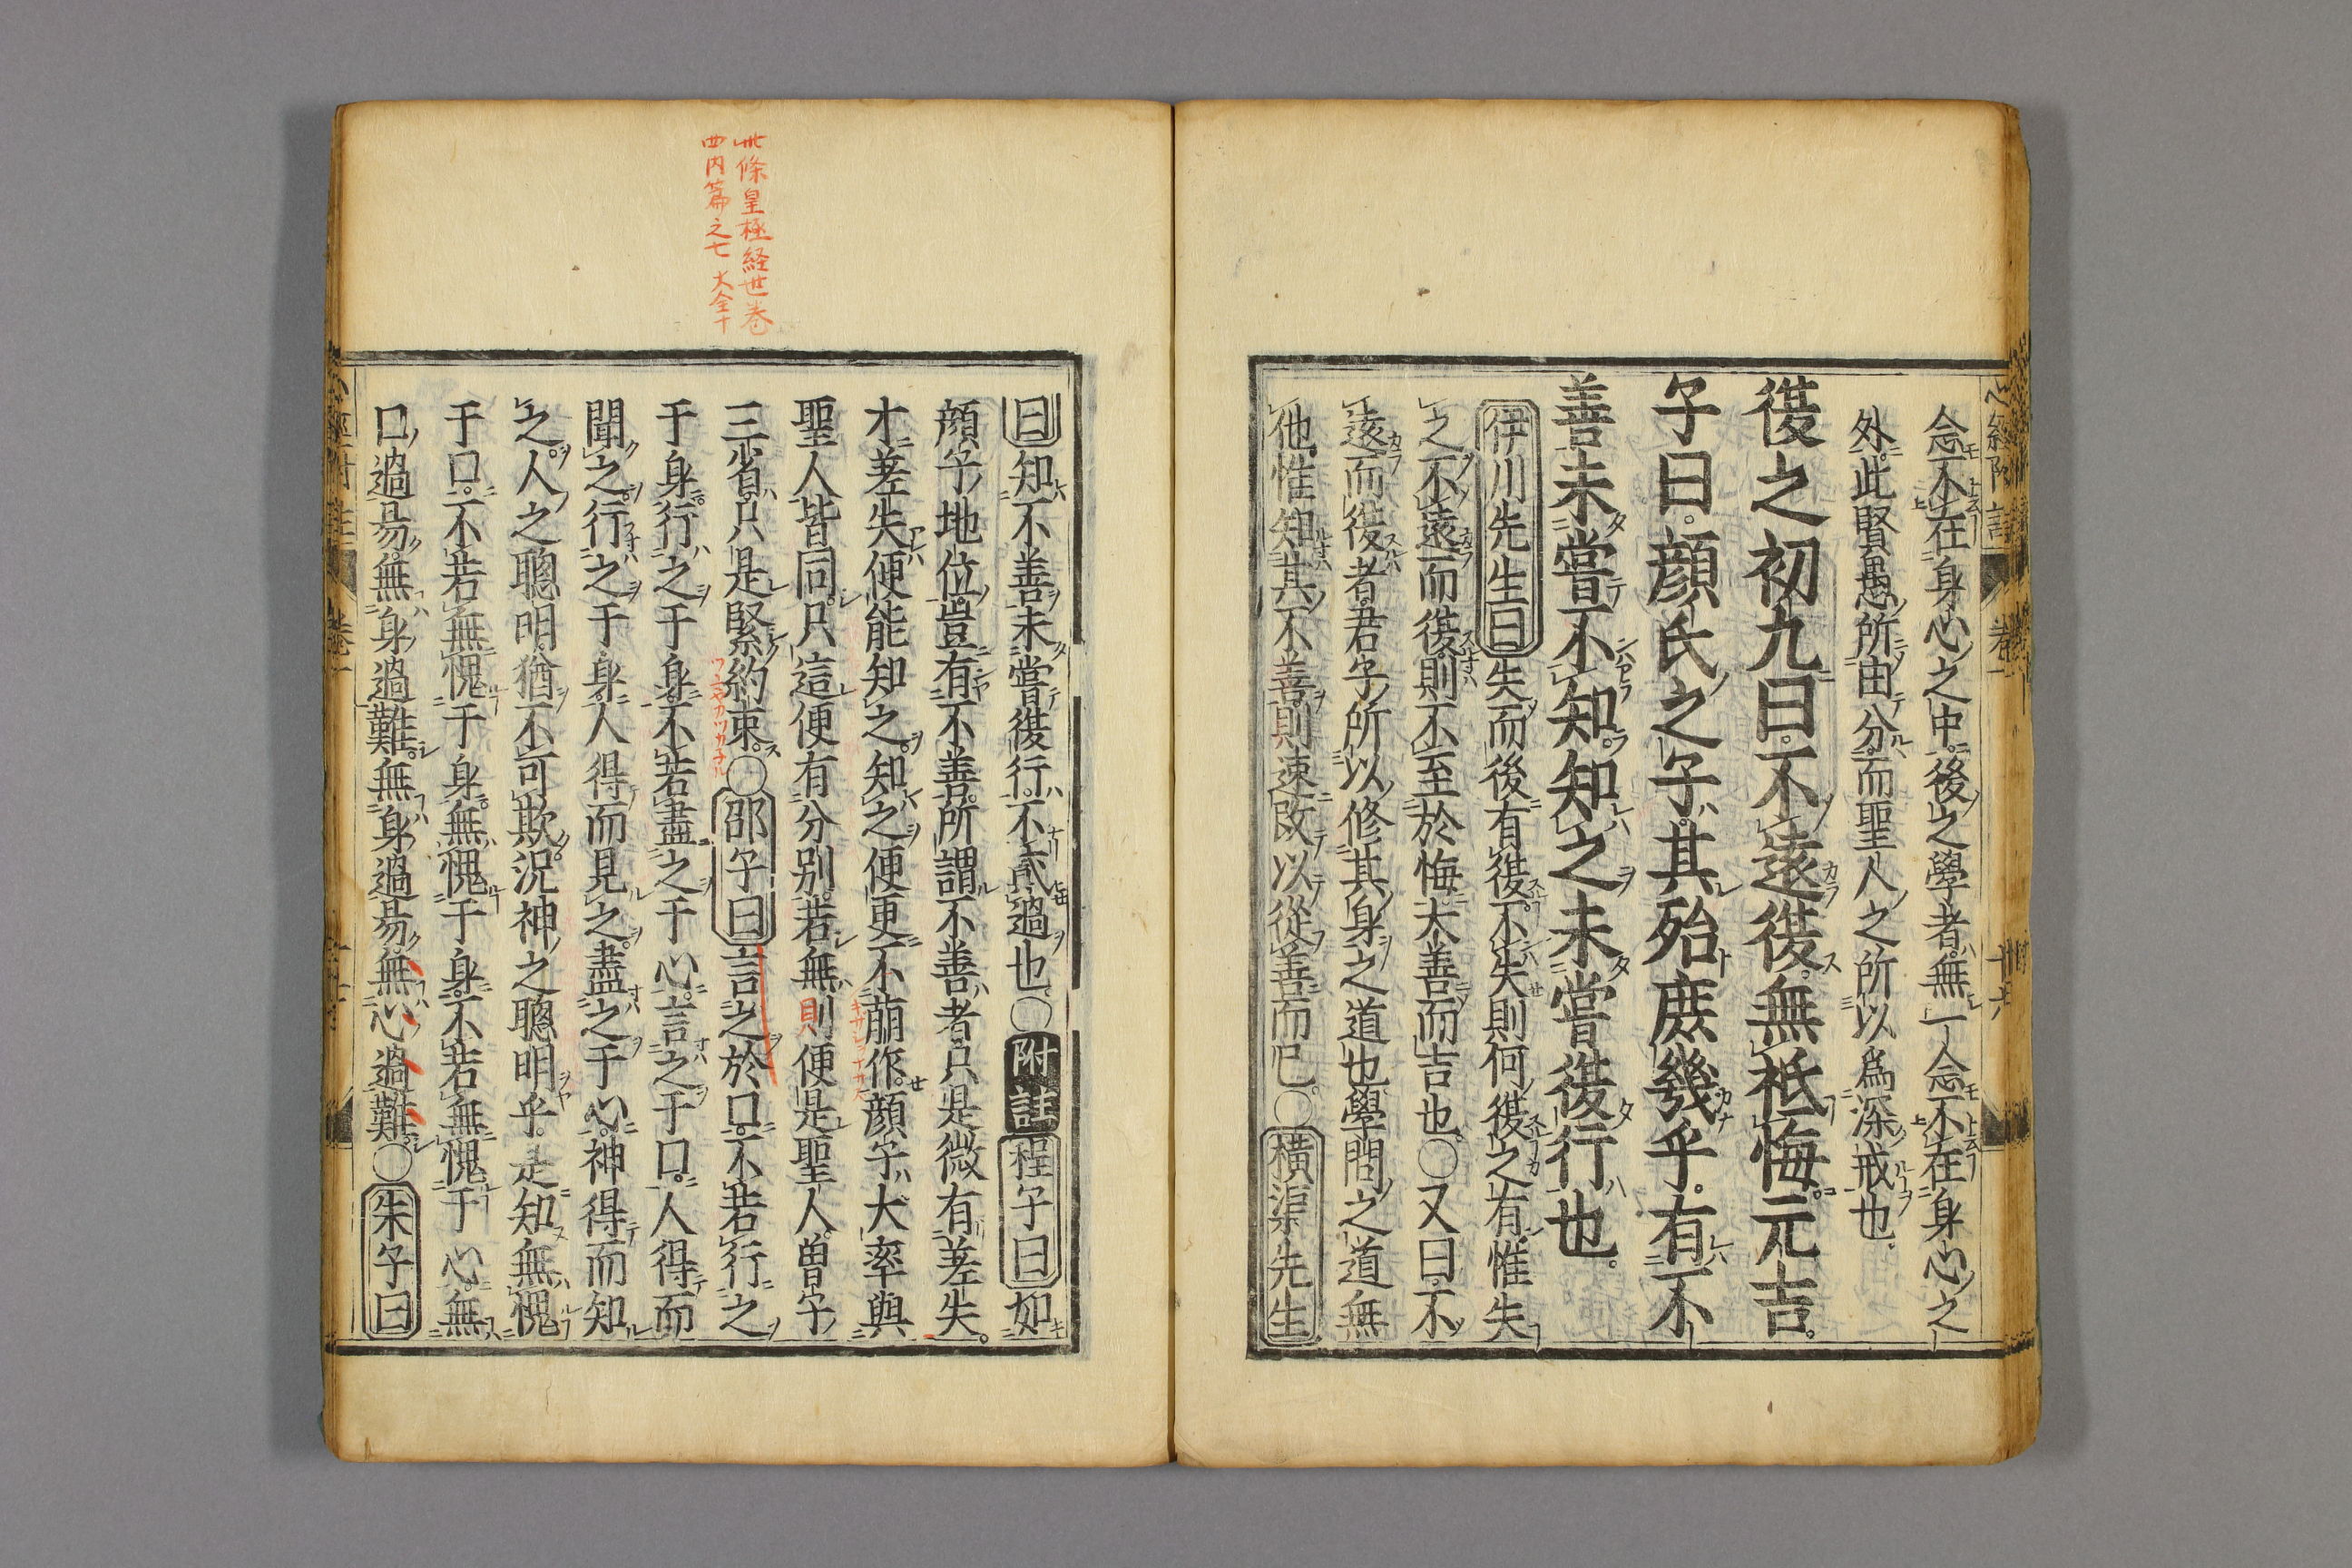 念不在身心之中後之學者無一念不在身心之
外此賢愚所由分而聖人之所以為深戒也
復之初九曰不遠復無祗悔元吉
子曰顔氏之子其殆庶幾乎有不
善未嘗不知知之未嘗復行也
伊川先生曰失而後有復不失則何復之有惟失
之不遠而復則不至於悔大善而吉也〇又曰不
遠而復者君子所以修其身之道也學問之道無
他惟知其不善則速改以從善而已〇横渠先生
曰知不善未嘗復行不貳過也〇附註程子曰如
顔子地位豈有不善所謂不善者只是微有差失
才差失便能知之知之便更不萠作顔子大率與
聖人皆同只這便有分别若無則便是聖人曽子
三省只是緊約束〇邵子曰言之於口不若行之
于身行之于身不若盡之于心言之于口人得而
聞之行之于身人得而見之盡之于心神得而知
之人之聰明猶不可欺況神之聰明乎是知無愧
于口不若無愧于身無愧于身不若無愧于心無
口過易無身過難無身過易無心過難〇朱子曰
此條皇極経世巻
四内篇之七 大全十
心經附註 卷一 十六